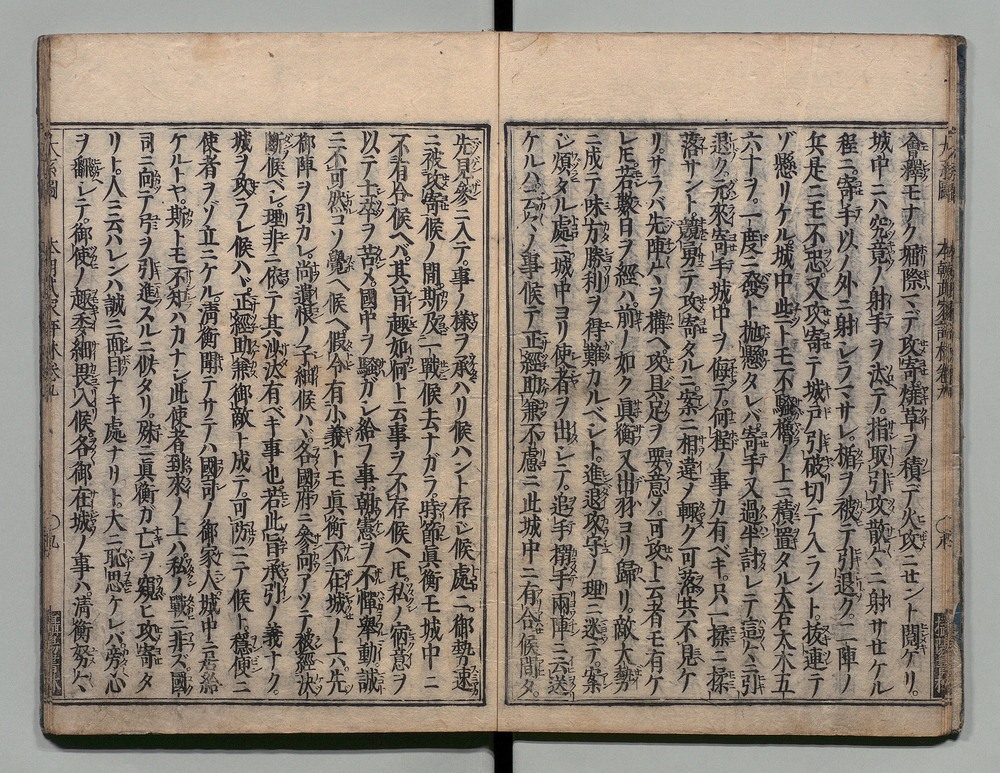 會釋モナク堀際マデ攻寄燒草ヲ積デ火攻ニセント鬪ケリ。
城中ニハ究竟ノ射手ヲ汰テ。指取引攻散々ニ射サセケル
程ニ。寄手以ノ外ニ射シラマサレ。楯ヲ被テ引退ク。二陣ノ
兵是ニモ不忠。又攻寄テ城戸ノ引破切テ入ラント。拔連テ
ゾ懸リケル城中些トモ不騷櫓ノ上ニ積置タル大石大木五
六十ヲ。一度ニ發ト抛懸タレバ。寄手又過半討レテ這々ニ引
退ク。元來寄手城中ヲ侮テ。何程ノ事カ有ベキ。只一揉ニ揉
落サント競勇テ攻寄タルニ。案ニ相違ノ輙ク可落共不見ケ
リ。サラバ先陣戸ヲ構ヘ攻具足ヲ要意ノ可攻ト云者モ有ケ
レ𪜈。若數日ヲ經ハ。前ノ如ク眞衡又出羽ヨリ歸リ。敵大勢
ニ成テ味方勝利ヲ得難カルベシト。進退攻守ノ理ニ迷テ。案
ジ煩タル處ニ城中ヨリ使者ヲ出シテ。追手搦手兩陣ニ云送
ケルハ。云々ノ事候テ正經助兼不慮ニ此城中ニ有合候間タ。
先見參ニ入テ。事ノ樣ヲ承ハリ候ハント存シ候處ニ。御勢速
ニ被攻寄候ノ間。斯及一戰候去ナガラ。時節眞衡モ城中ニ
不有合候ヘバ。其旨趣如何ト云事ヲ不存候ヘ𪜈。私ノ病意ヲ
以テ士卒ヲ苦メ。國中ヲ騷ガシ給フ事。朝憲ヲ不憚舉動誠
ニ不可然コソ覺ヘ候ヘ假令有小義トモ眞衡不在城ノ上ハ。先
御陣ヲ引カレ。尚遺恨ノ子細候ハヾ。各國府ニ參向アツテ被經决
斷候ベシ。理非ニ依テ其沙汰有ベキ事也。若此旨承引ノ義ナク。
城ヲ攻ラレ候ハヾ。正經助兼御敵ト成テ。可防ニテ候ト穩便ニ
使者ヲゾ立ニケル。清衡聞テサテハ國司ノ御家人城中ニ
ケルトヤ。斯トモ不知ハカナシ。此使者到來ノ上ハ。私ノ戰ニ非ズ。國
司ニ向テ弓ヲ引進スルニ似タリ。殊ニ眞衡ガ亡ヲ窺ヒ攻寄タ
リト。人ニ云ハレンハ誠ニ面目ナキ處ナリト。大ニ恥思ケレバ。旁心
ヲ翻シテ。御使ノ趣委細畏入候各御在城ノ事ハ。清衡努々